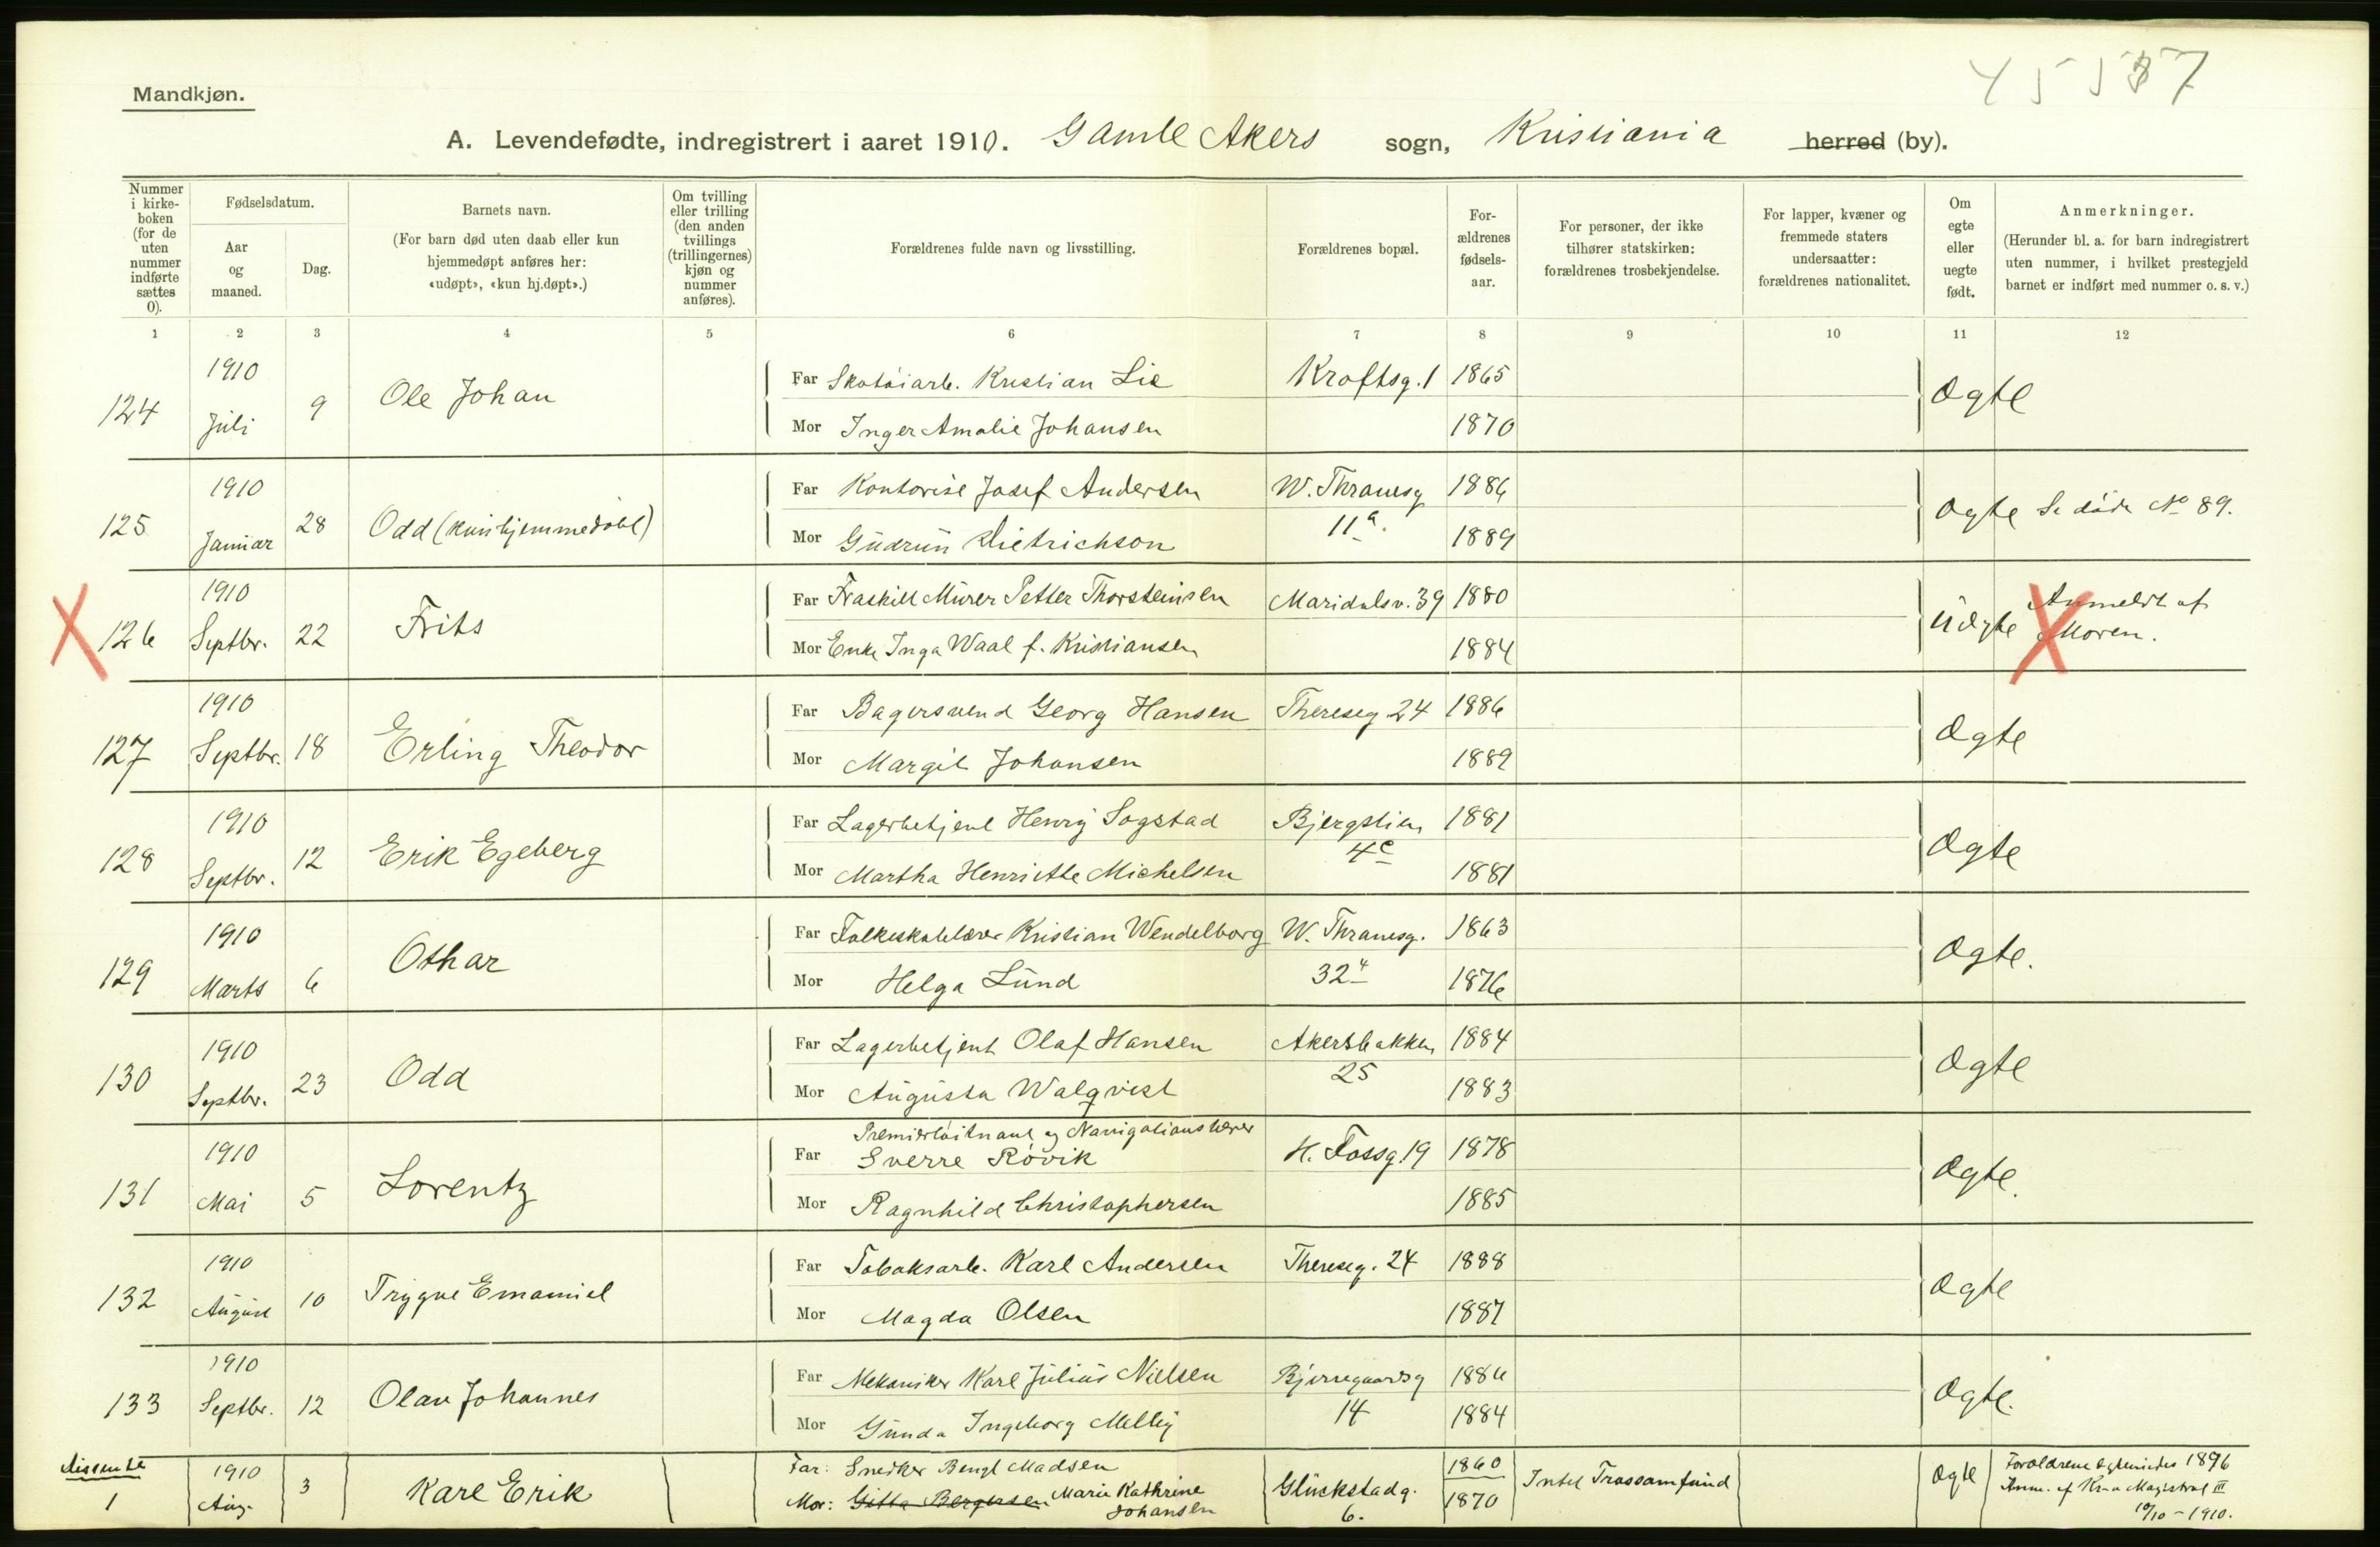 Mandkjøn.
A. Levendefødte, indregistrert i aaret 1910. Gamle Akers sogn, Kristiania herred (by).
Nummer i kirke-boken (for de uten nummer indførte sættes 0).
Fødselsdatum.
Aar og maaned.
Dag.
Barnets navn.
(For barn død uten daab eller kun hjemmedøpt anføres her: «udøpt», «kun hj.døpt».)
Om tvilling eller trilling (den anden tvillings (trillingernes) kjøn og nummer anføres).
Forældrenes fulde navn og livsstilling.
Forældrenes bopæl.
For-ældrenes fødsels-aar.
For personer, der ikke tilhører statskirken: forældrenes trosbekjendelse.
For lapper, kvæner og fremmede staters undersaatter: forældrenes nationalitet.
Om egte eller uegte født.
Anmerkninger.
(Herunder bl. a. for barn indregistrert uten nummer, i hvilket prestegjeld barnet er indført med nummer o. s. v.)
1 2 3 4 5 6 7 8 9 10 11 12
124 1910 Juli 9 Ole Johan
Far Skotøiarb. Kristian Lie Kroftsg. 1 1865 Ægte
Mor Inger Amalie Johansen 1870
125 1910 Januar 28 Odd (kun hjemmedøbt)
Far Kontorist Josef Andersen W. Thranesg 1886 Ægte Se døde No 89.
Mor Gudrun Dietrichson 11a. 1889
X 126 1910 Septbr. 22 Frits
Far Fraskilt Murer Petter Thorsteinsen Maridalsv. 39 1880 Uægte Anmeldt af Moren. X
Mor Enke Inga Waal f. Kristiansen 1884
127 1910 Septbr. 18 Erling Theodor
Far Bagersvend Georg Hansen Thereseg 24 1886 Ægte
Mor Margit Johansen 1889
128 1910 Septbr. 12 Erik Egeberg
Far Lagerbetjent Henry Sogstad Bjergstien 1881 Ægte
Mor Martha Henriette Michelsen 4c 1881
129 1910 Marts 6 Othar
Far Folkeskolelærer Kristian Wendelborg W. Thranesg. 1863 Ægte.
Mor Helga Lund 32 1876
130 1910 Septbr. 23 Odd
Far Lagerbetjent Olaf Hansen Akersbakken 1884 Ægte
Mor Augusta Walqvist 25 1883
131 1910 Mai 5 Lorentz
Premierløitnant og Navigationslærer
Far Sverre Røvik H. Fossg. 19 1878 Ægte.
Mor Ragnhild Christophersen 1885
132 1910 August 10 Trygve Emanuel
Far Tobaksarb. Karl Andersen Thereseg. 24 1888 Ægte
Mor Magda Olsen 1887
133 1910 Septbr. 12 Olav Johannes
Far Mekaniker Karl Julius Nielsen Bjerregaardsg 1886 Ægte.
Mor Gunda Ingeborg Melby 14 1884
Dissente 1 1910 Aug. 3 Karl Erik
Far: Snedker Bengt Madsen Glückstadg. 6. 1860 Intet Trossamfund Ægte
Mor: Gitta Bergersen Marie Kathrine Johansen 1870
Forældrene egteviedes 1896
Anm. af Kr-a Magistrat III
10/10 - 1910.